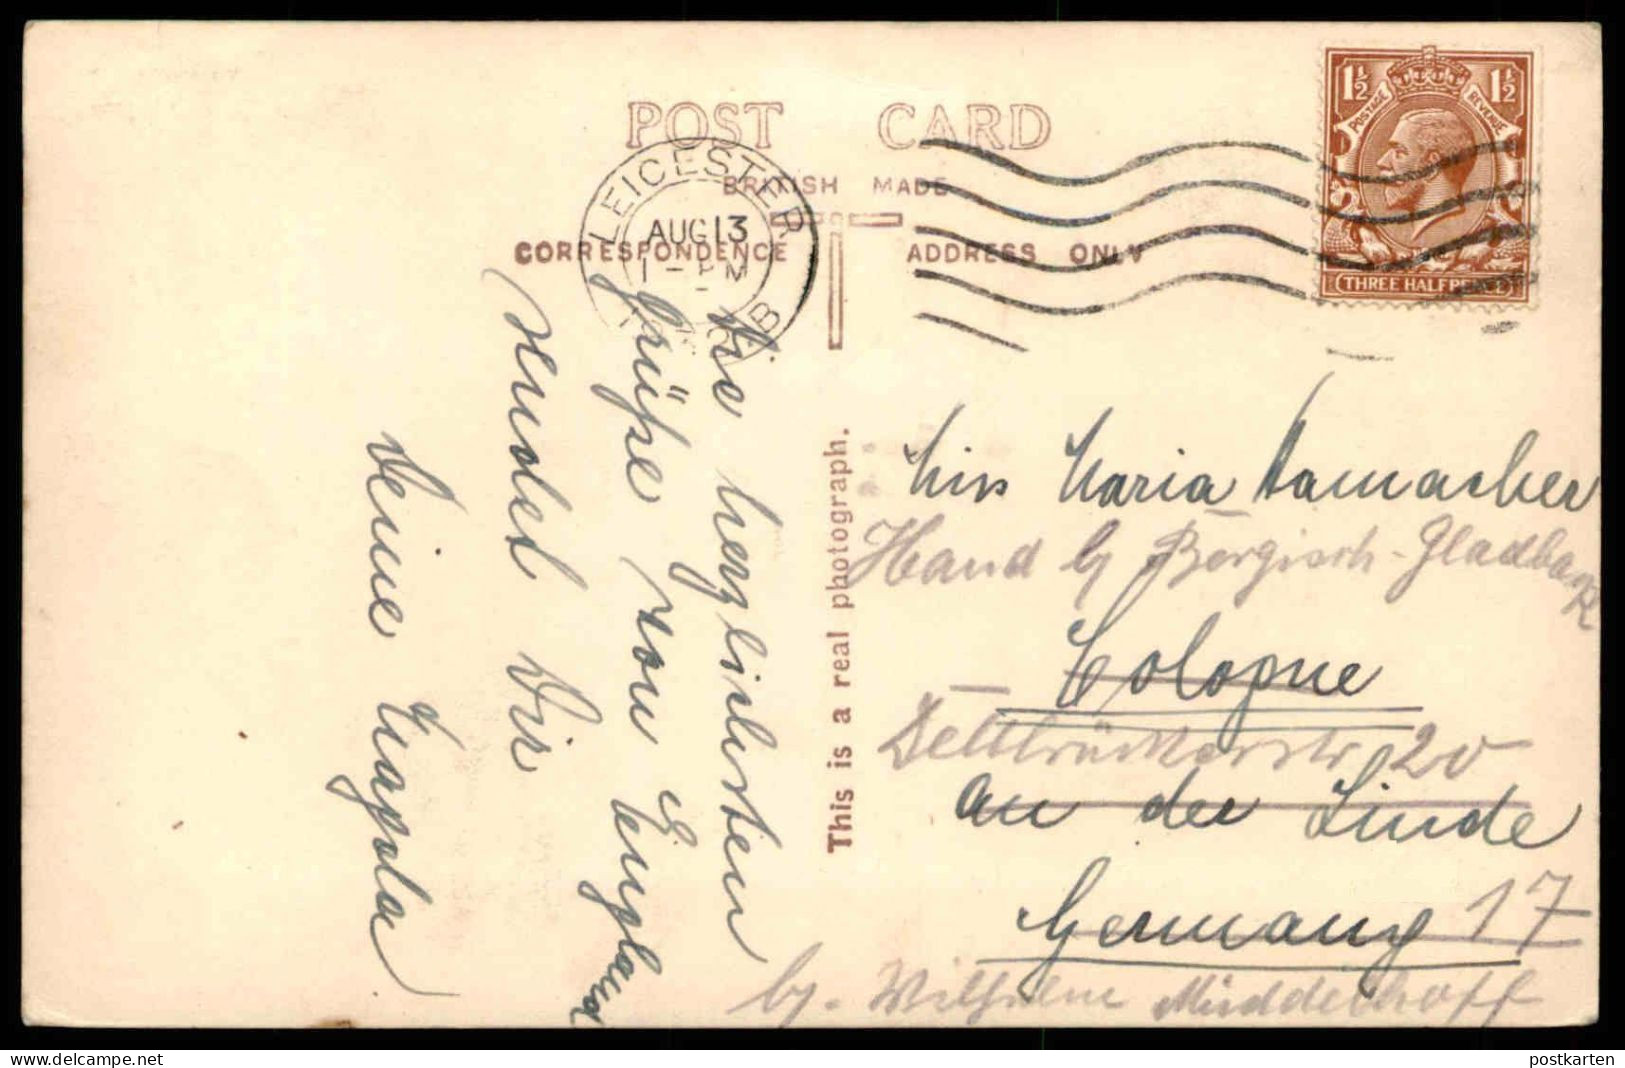 POST CARD
BRITISH MADE
CORRESPONDENCE ADDRESS ONLY
LEICESTER
AUG 13
1 - PM
1½ 1½
POSTAGE REVENUE
THREE HALFPENCE
This is a real photograph.
Die herzlichsten
Grüße von England
sendet Dir
Deine
Miss Maria
Hand b/ Bergisch-Gladbach
Cologne
Dellbrückerstr 20
an der Linde
17
Germany
by. Wilhelm Middelhoff
postkarten